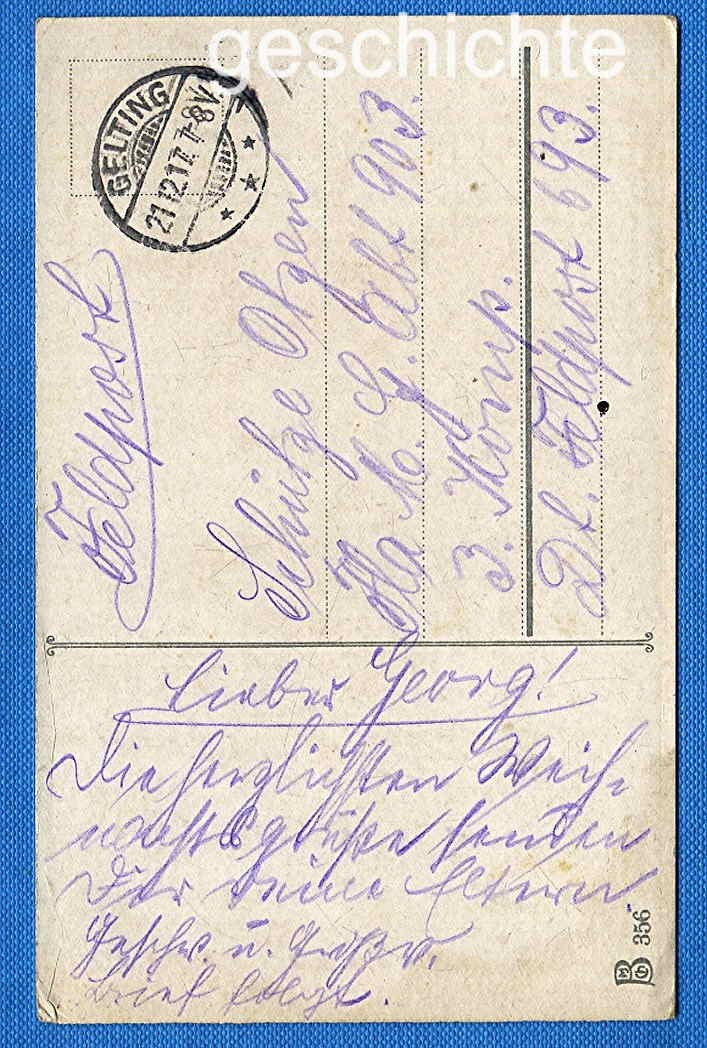 geschichte
GELTING
21.12.17. 7-8V.
Feldpost
Schütze Otzen
M. G. Abt 903.
3. Komp.
Dt. Feldpost 693.
Lieber Georg!
Die herzlichsten Weih-
nachtsgrüße senden
Dir deine Eltern
Geschw. u. Großv.
Brief folgt.
356